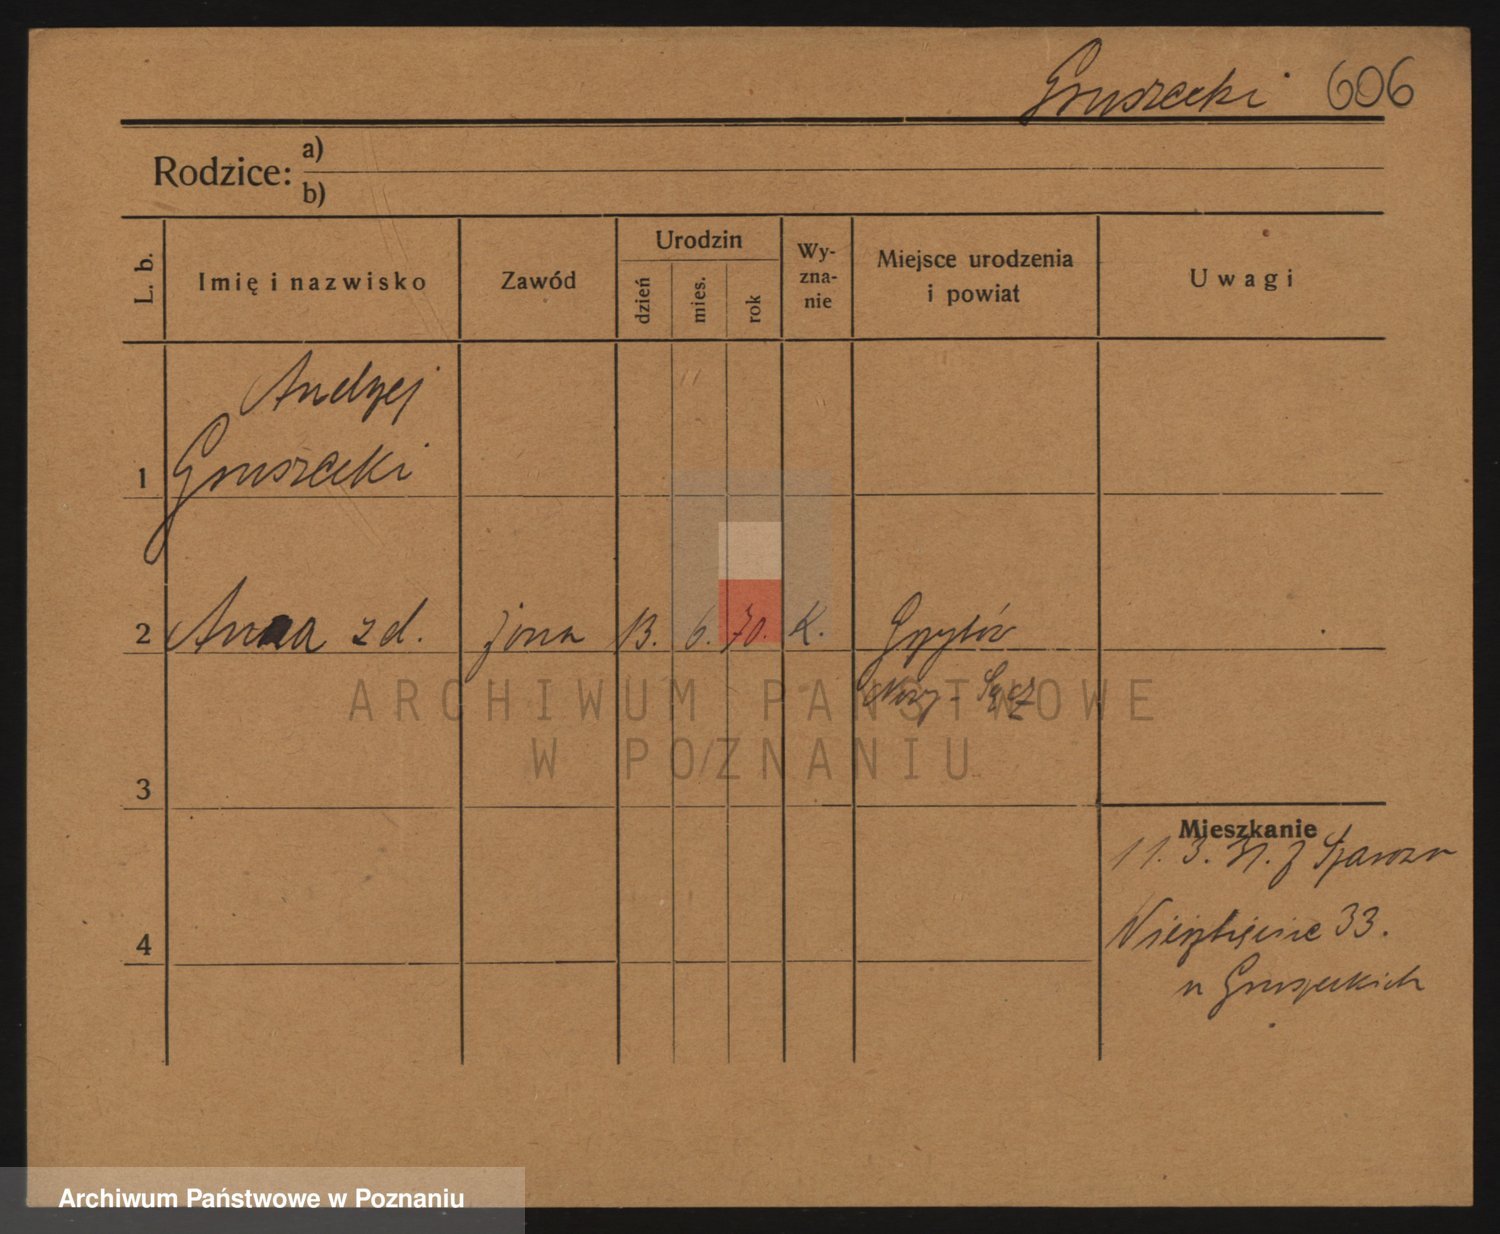 Gruszecki 606
Rodzice: a)
b)
L. b.
Imię i nazwisko
Zawód
Urodzin
dzień
mies.
rok
Wy-
zna-
nie
Miejsce urodzenia
i powiat
Uwagi
Andrzej
1 Gruszecki
2 Anna z d. żona 13. 6. 70. K. Grybów
Nowy-Sącz
ARCHIWUM PAŃSTWOWE
W POZNANIU
3
Mieszkanie
11. 3. 31. z
4
Wierzbięcice 33.
u Gruszeckich
Archiwum Państwowe w Poznaniu